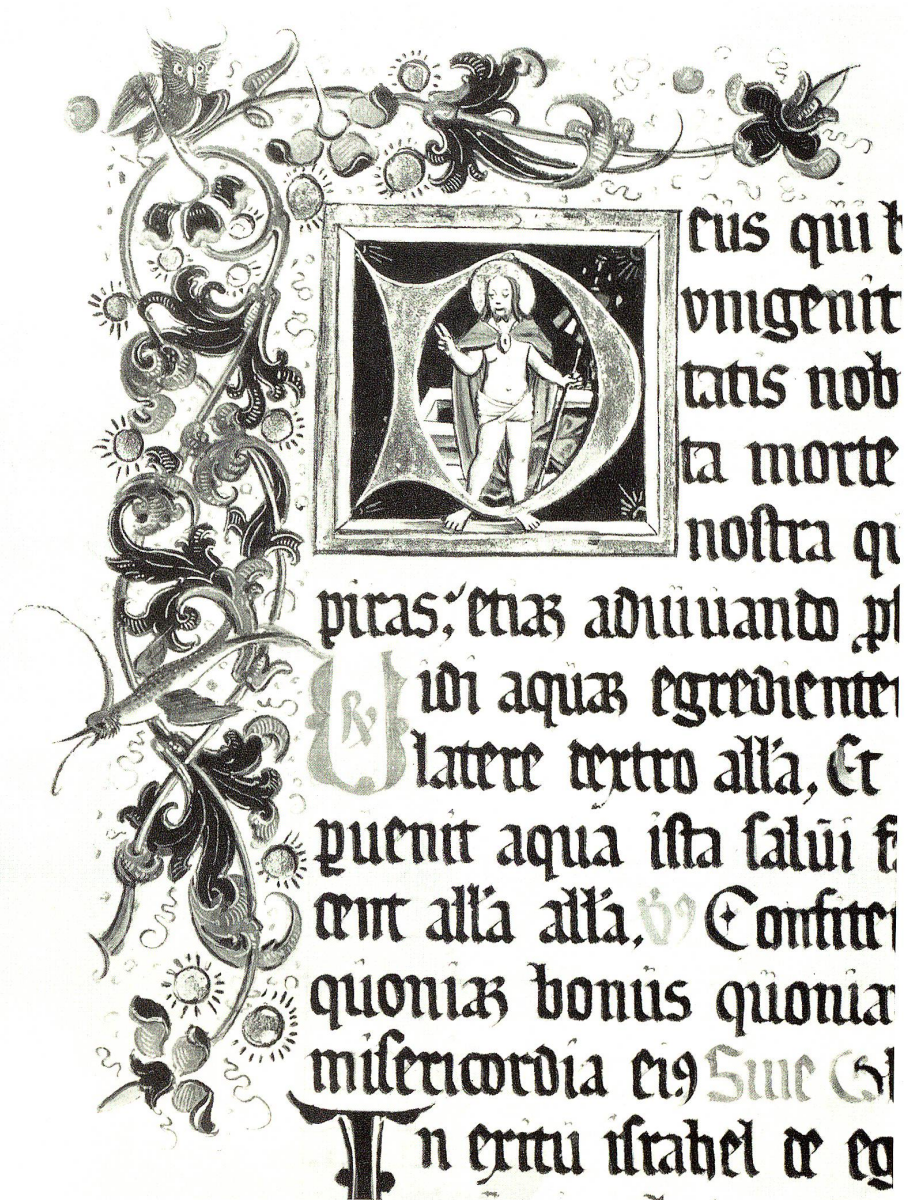 Deus qui
vnigenit
tatis nob
ta morte
nostra qu
piras; etiaꝫ adiuuando
Uidi aquaꝫ egrediente
latere dextro alľa, Et
ꝑuenit aqua ista salui f
cent alľa alľa, Confite
quoniaꝫ bonus quonia
misericordia eiꝰ Sine Gl
In exitu israhel de eg